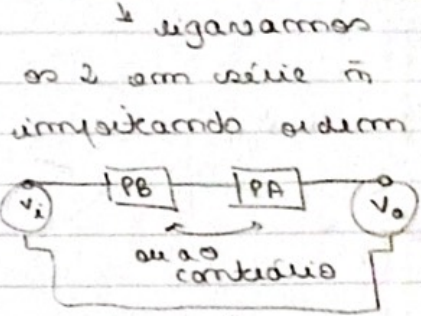 ↳ ligavamos
os 2 em série ñ
importando ordem
Vi PB PA Vo
ou ao
contrário